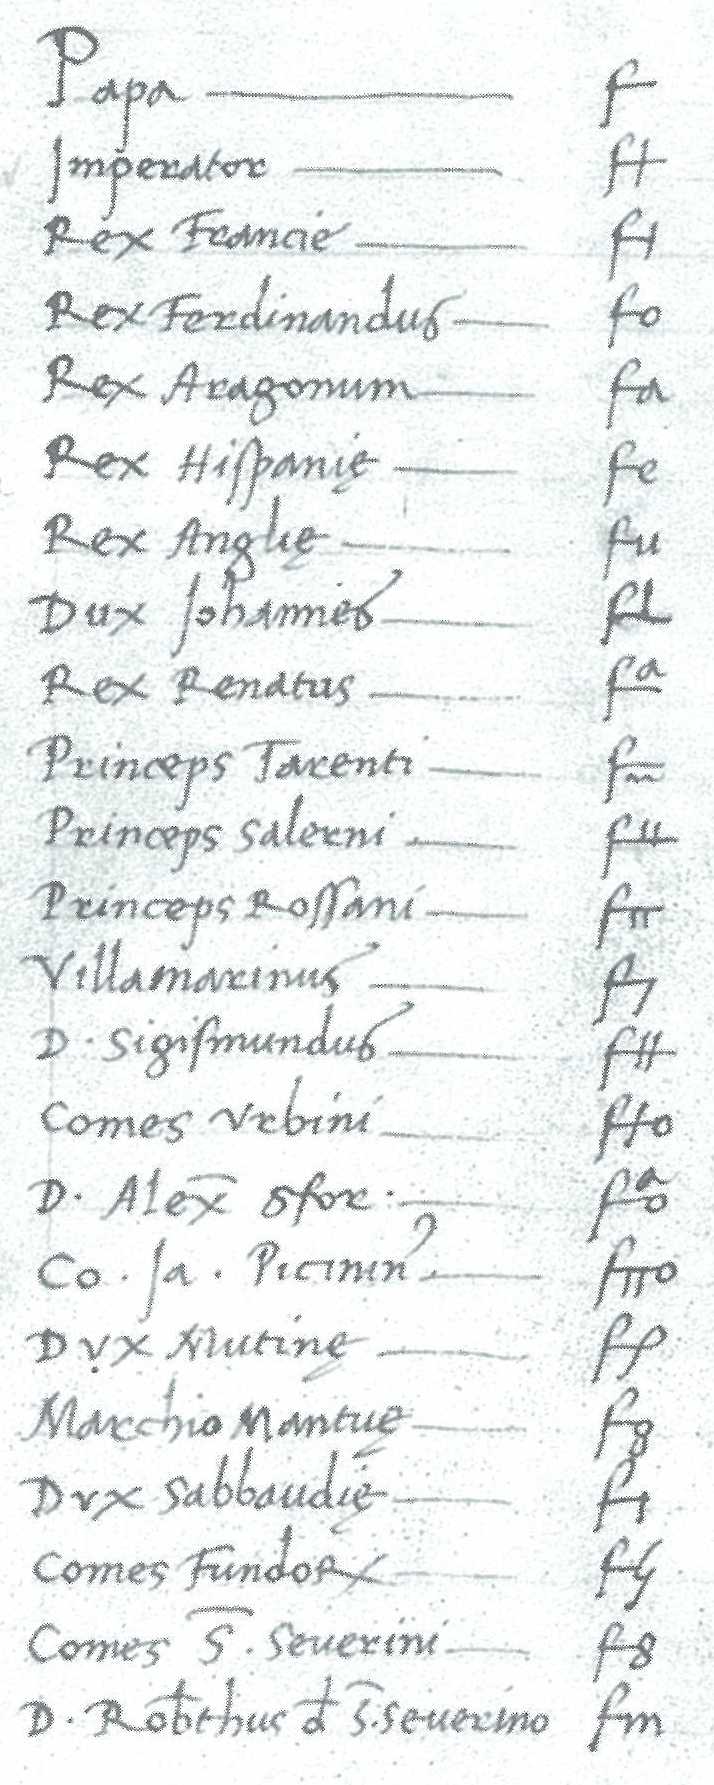 Papa — f
Imperator —
Rex Francie —
Rex Ferdinandus — fo
Rex Aragonum — fa
Rex Hispanię — fe
Rex Anglię — fu
Dux Johannes —
Rex Renatus —
Princeps Tarenti —
Princeps Salerni —
Princeps Rossani —
Villamarinus —
D. Sigismundus —
Comes Vrbini —
D. Alex̄ Sfor. —
Co. Ja. Picinin9 —
Dvx Mutinę — fp
Marchio Mantuę — f8
Dvx Sabbaudię —
Comes Fundoꝝ — fy
Comes S̄. Seuerini — f8
D. Robthus đ S̄. Seuerino fm